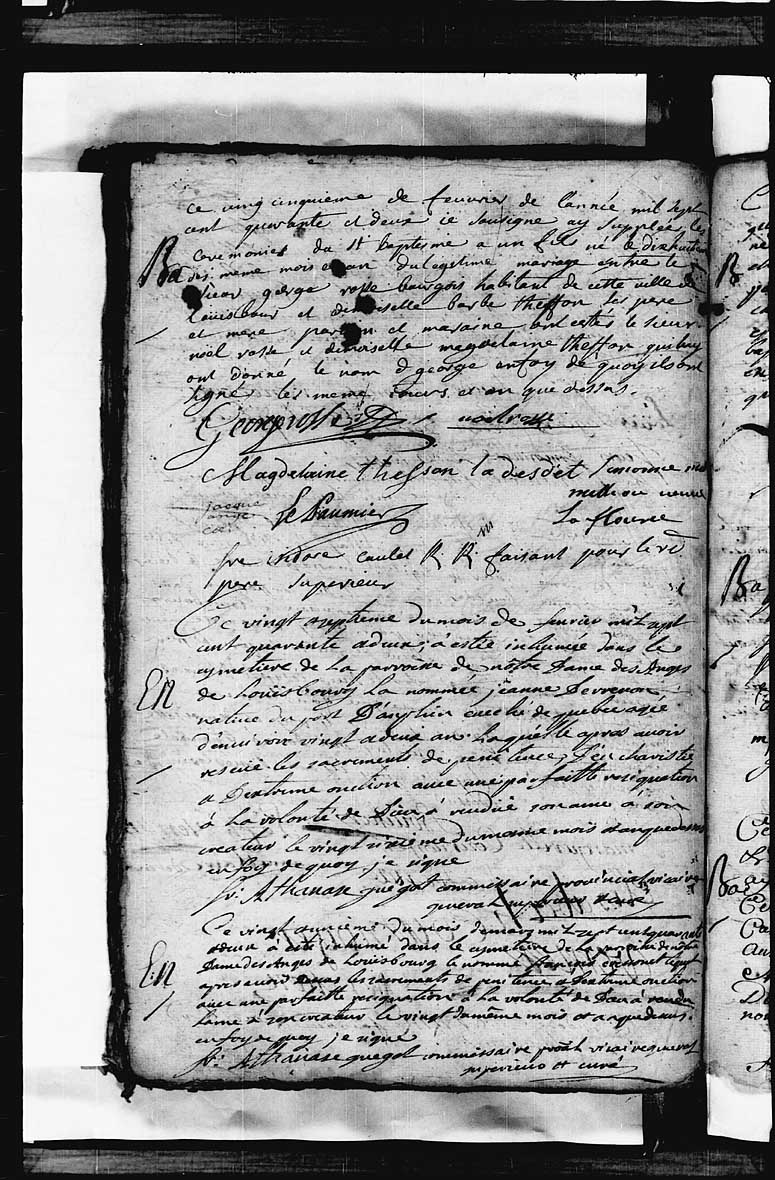 ce ving cinquieme de feuvrier de lannée mil sept
cent quarante et deux ie sousigne ay supplée les
Ba
ceremonies du St baptesme a un fils né le dixhuit
des meme mois et an du legitime mariage entre le
sieur george rosse bourgois habitant de cette ville de
Louisbour et demoiselle barbe theffon ses pere
et mere parain et maraine ont estés le sieur
noël rosse et demoiselle magdelaine theffon qui luy
ont donné le nom d george en foy de quoy ils ont
signé les meme jours et an que dessus.
George rosse noel rosse
Magdelaine thesson ladesdet simonne
millou veuve
jacque
Le Paumier
La fleurie
fre caulet R. R. faisant pour le rd
pere superieur
Ce vingt septieme du mois de fevrier mil sept
cent quarante adeux, à estée inhumée dans le
cymetiere de la parroisse de nostre Dame des Anges
En
de Louisbourg la nommée jeanne
native du port Dauphin eveché de quebec agée
d'environ vingt adeux an laquelle apres avoir
resceue les sacrements de penitence, d'eucharistie
a Dextreme onction avec une parfaitte resignation
à la volonté de Dieu, à rendüe son ame à son
createur le vingt sixieme du mesme mois et an que dessus
en foy de quoy je signe
fr. Athanase guégot commissaire provincial vicaire
general superieur et curé
Ce vingt unieme du mois de mars mil sept cent quarante
adeux à esté inhumé dans le cymetiere de la parroisse de nostre
En
Dame des Anges de Louisbourg le nommé françois
apres avoir receus les sacrements de penitence, a Dextreme onction
avec une parfaitte resignation à la volonté de Dieu a rendu
lame à son createur le vingt du même mois et an que dessus.
en foy de quoy je signe
fr. Athanase guegot commissaire proval vicaire general
superieur et curé